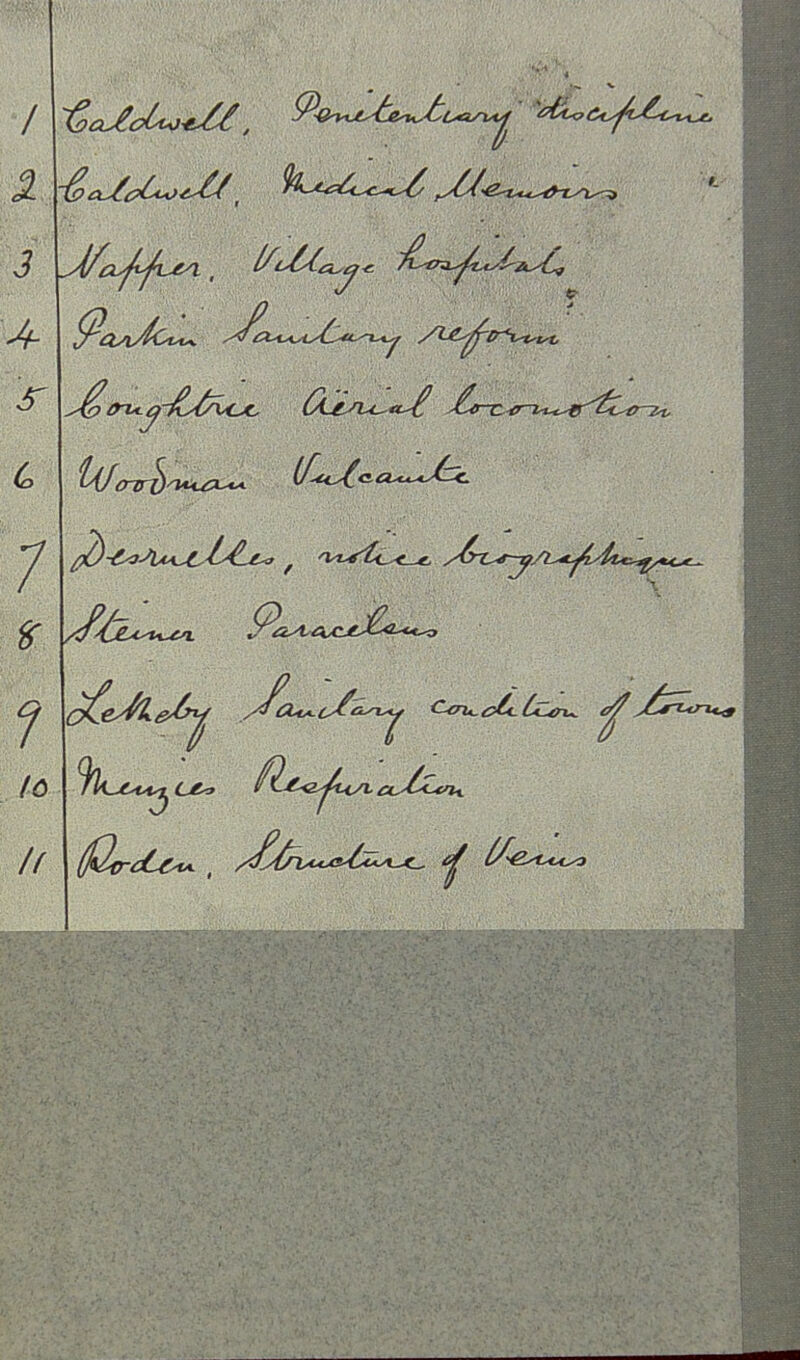 1 Caldwell, Penitentiary discipline
2 Caldwell, Medical Memoirs
3 Napper, Village hospitals
4 Parkin Sanitary reform
5 Coughtrie Aërial locomotion
6 Woodman Vulcanite
7 Desruelles, notice biographique
8 Steiner Paracelsus
9 Letheby Sanitary condition of towns
10 Menzies Respiration
11 Roden, Structure of Veins